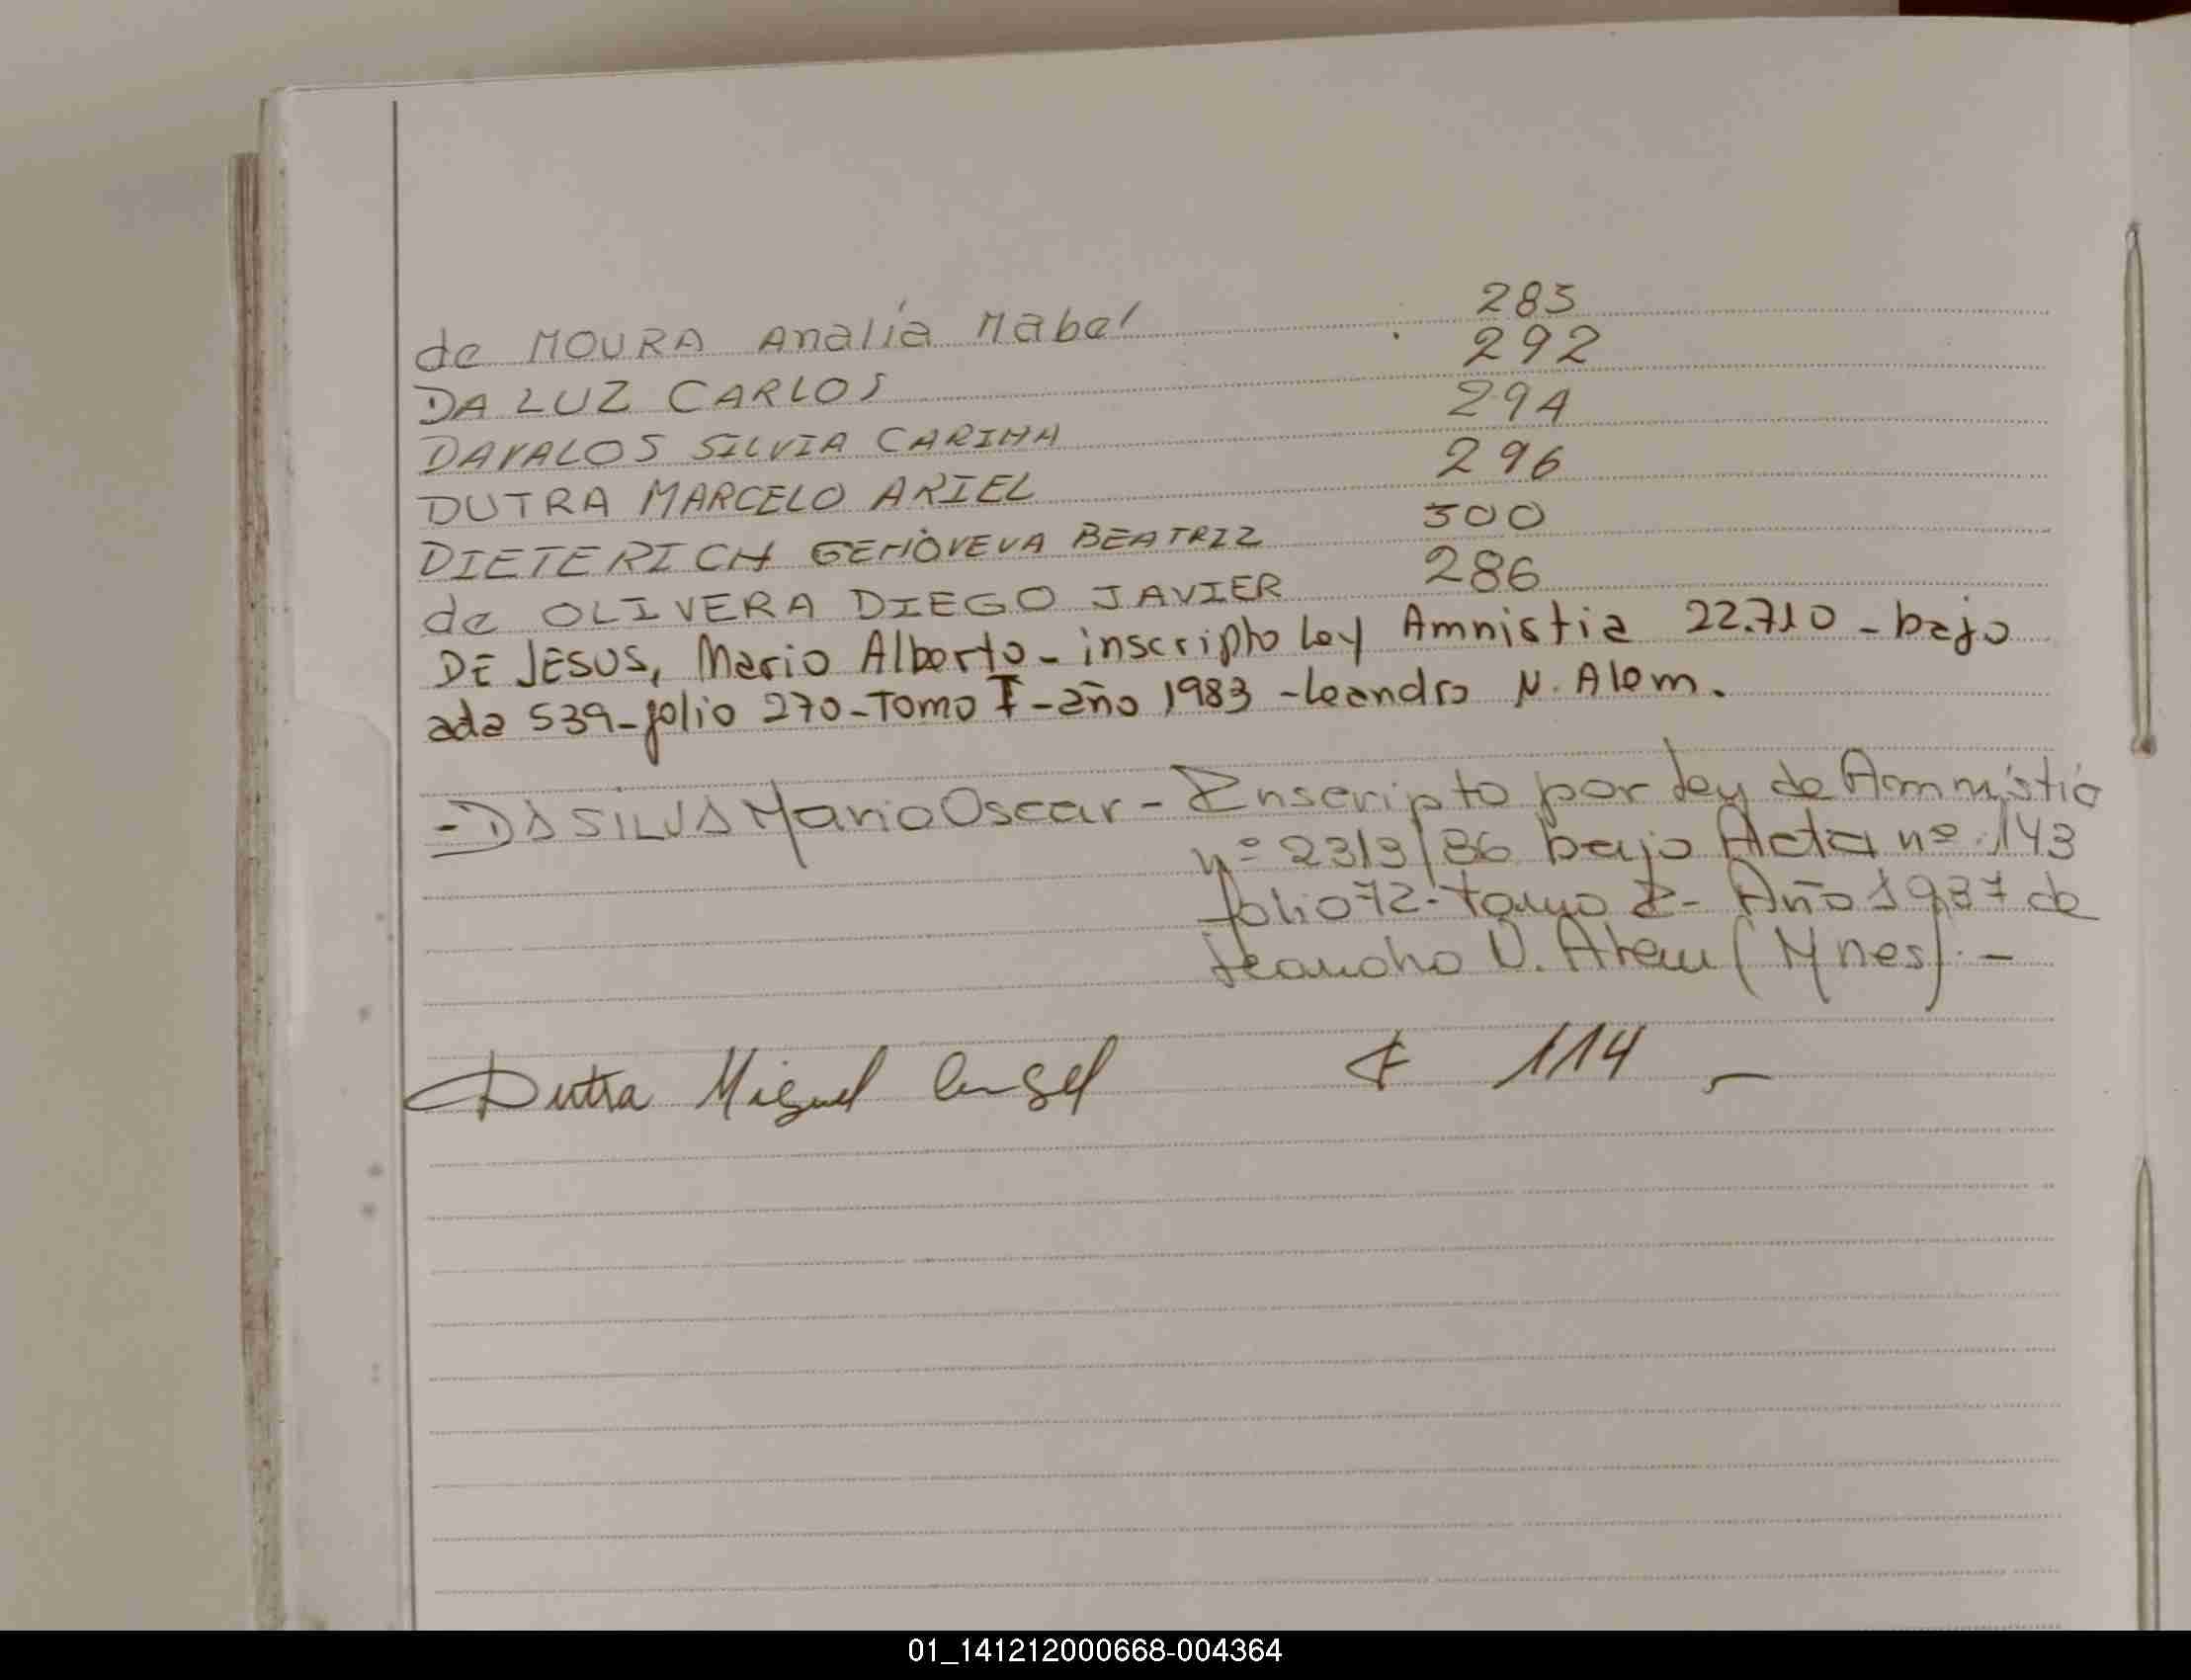 de MOURA Analía Mabel 285
DA LUZ CARLOS 292
DAVALOS SILVIA CARINA 294
DUTRA MARCELO ARIEL 296
DIETERICH GENOVEVA BEATRIZ 300
de OLIVERA DIEGO JAVIER 286
DE JESUS, Mario Alberto - inscripto Ley Amnistia 22.710 - bajo
acta 539 - folio 270 - Tomo I - año 1983 - Leandro N. Alem.
- DA SILVA Mario Oscar - Inscripto por Ley de Amnistía
nº 2319/86 bajo Acta nº 143
folio 72 - tomo I - Año 1987 de
Leandro N. Alem (Mnes). -
Dutra Miguel Angel F 114 -
01_141212000668-004364